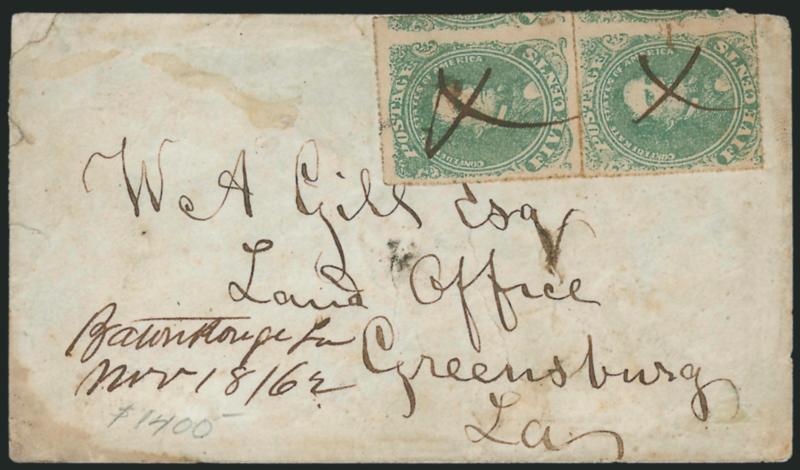 POSTAGE
CONFEDERATE STATES OF AMERICA
FIVE CENTS
POSTAGE
CONFEDERATE STATES OF AMERICA
FIVE CENTS
W A Gill Esq
Land Office
Greensburg
La
Baton Rouge La
Nov 18/62
$1400-